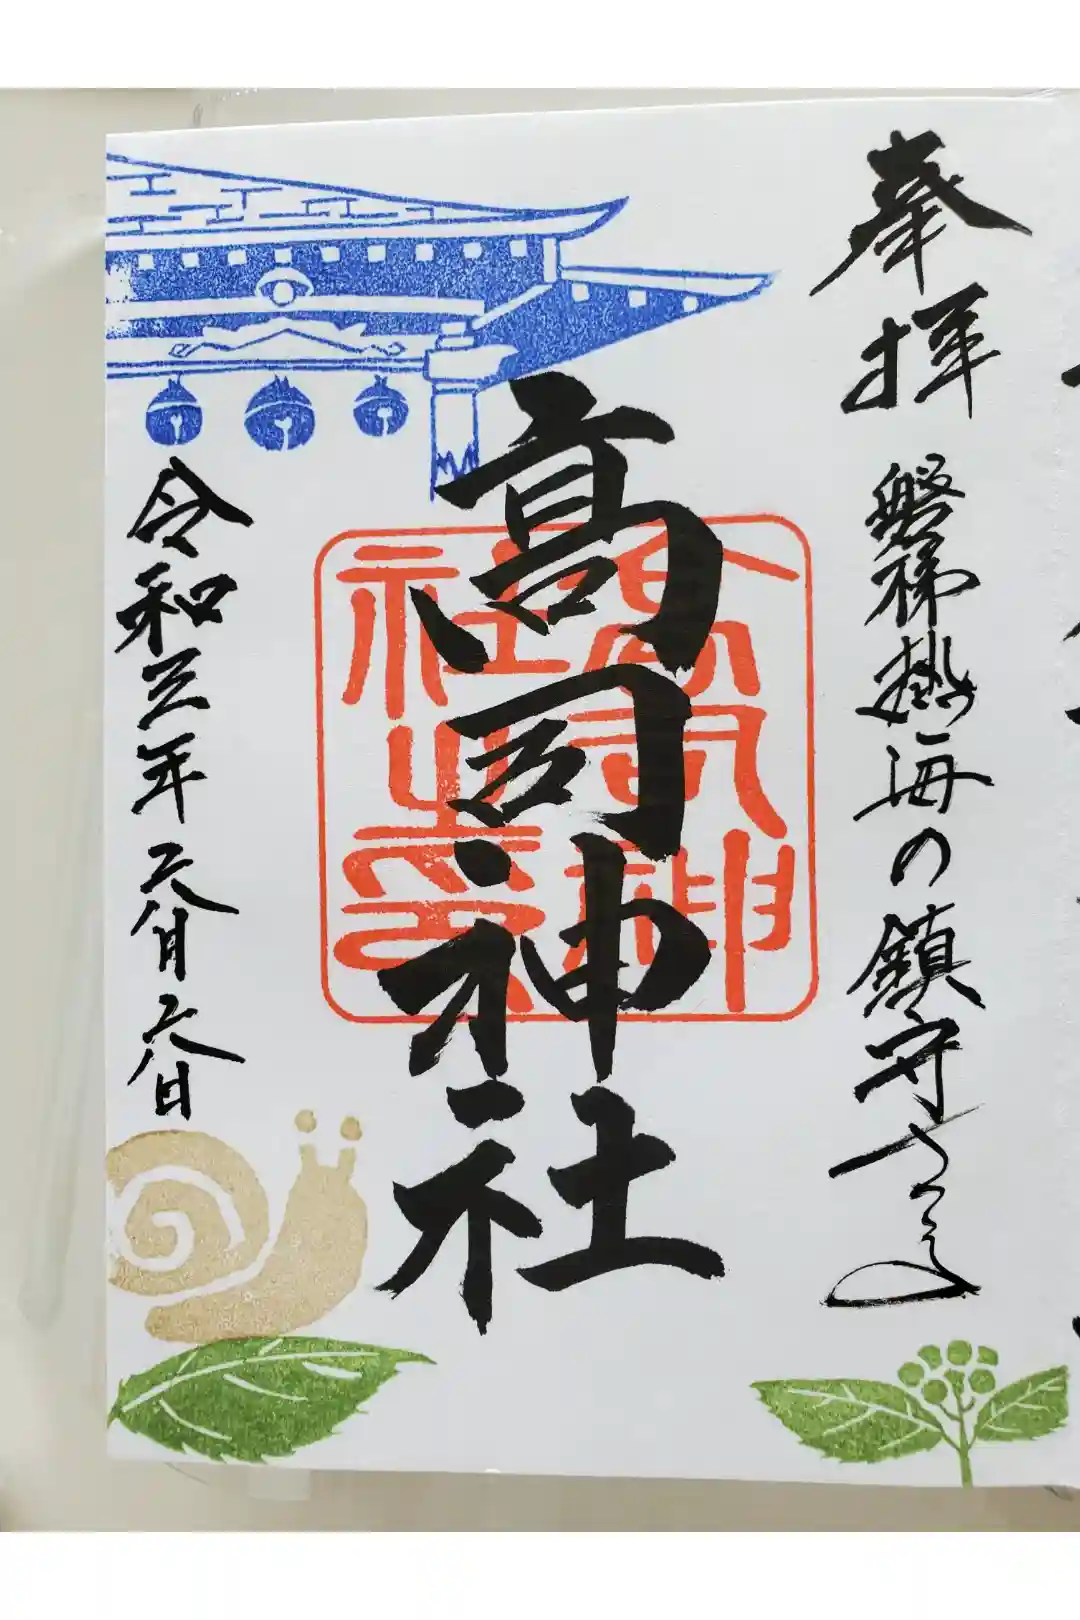 奉拝
磐梯熱海の鎮守
高司神社
高司神
社之印
令和三年六月六日